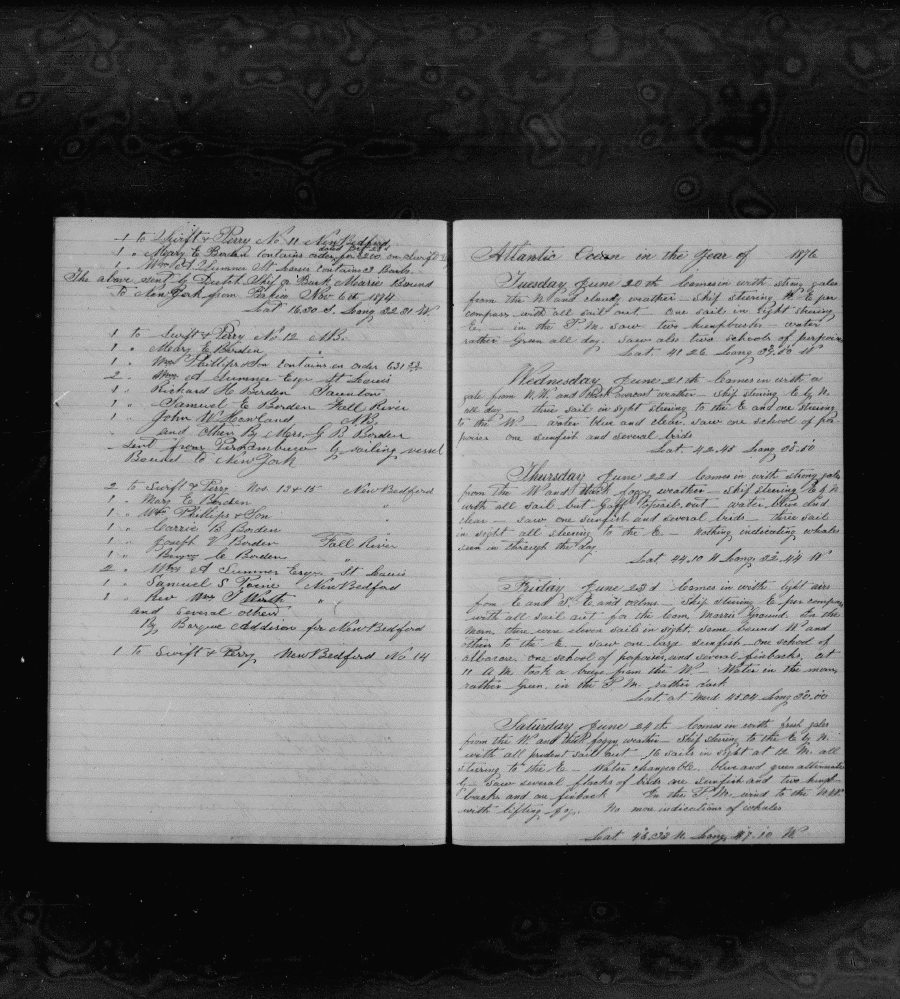 1 to Swift & Perry No 11 New Bedford
1 " Mary E Borden contains order for $200 on Swift &
1 " Wm A Sumner St Louis contains 2
The above sent by Dutch Ship or Bark Bound
To New York from Nov 6th 1874
Lat 16.30 S. Long 22.31 W
1 to Swift & Perry No 12 N.B.
1 " Mary E Borden "
1 " Wm Phillips & Son contains an order
2 " Wm A Sumner Esqr St Louis
1 " Richard H Borden Taunton
1 " Samuel E Borden Fall River
1 " John W Howland N.B.
and others By Mrs. G B Borden
Sent from Pernambuco by sailing vessel
Bound to New York
2 to Swift & Perry Nos 13 & 15 New Bedford
1 " Mary E Borden "
1 " Wm Phillips & Son "
1 " Carrie B Borden
1 " Joseph V Borden Fall River
1 " C Borden "
2 " Wm A Sumner Esqr St Louis
1 " Samuel S Paine New Bedford
1 " Rev Wm "
and several others "
By Barque Addison for New Bedford
1 to Swift & Perry New Bedford No 14
Atlantic Ocean in the Year of 1876
Tuesday June 20th Comes in with strong gales
from the W and cloudy weather – Ship steering E per
compass with all sail out – One sail in sight steering
E. – in the P.M. saw two humpbacks – water
rather Green all day. Saw also two schools of porpoises
Lat 41.26 Long W
Wednesday June 21st Comes in with a
gale from N.W. and thick overcast weather – Ship steering E by N.
all day – three sail in sight steering to the E and one steering
to the W – water blue and clear. Saw one school of por
poises one sunfish and several birds
Lat. 42.45 Long
Thursday June 22d Comes in with strong gales
from the W and thick foggy weather – Ship steering E by N
with all sail but Gaff Topsail out – water blue and
clear – saw one sunfish and several birds – three sail
in sight all steering to the E – nothing indicating whales
seen in through the day
Lat 44.10 N Long W
Friday June 23d Comes in with light airs
from E and S.E. and calms – Ship steering E per compass
with all sail out for the Com. Morris Ground. In the
morn. there were eleven sails in sight. some bound W and
others to the E – saw one large sunfish one school of
albacore, one school of porpoises, and several finbacks. at
11 A.M. took a breeze from the W. – Water in the morn.
rather Green, in the P.M. rather dark
Lat. at Merd 45.04 Long
Saturday June 24th Comes in with fresh gales
from the W. and thick foggy weather – Ship steering to the E by N.
with all prudent sail out 16 sails in sight at 12 M. all
steering to the E – Water changeable. blue and green alternate
ly – Saw several flocks of birds one sunfish and two hump
backs and one finback In the P.M. wind to the
with lifting fog. No more indications of whales
Lat. N Long W